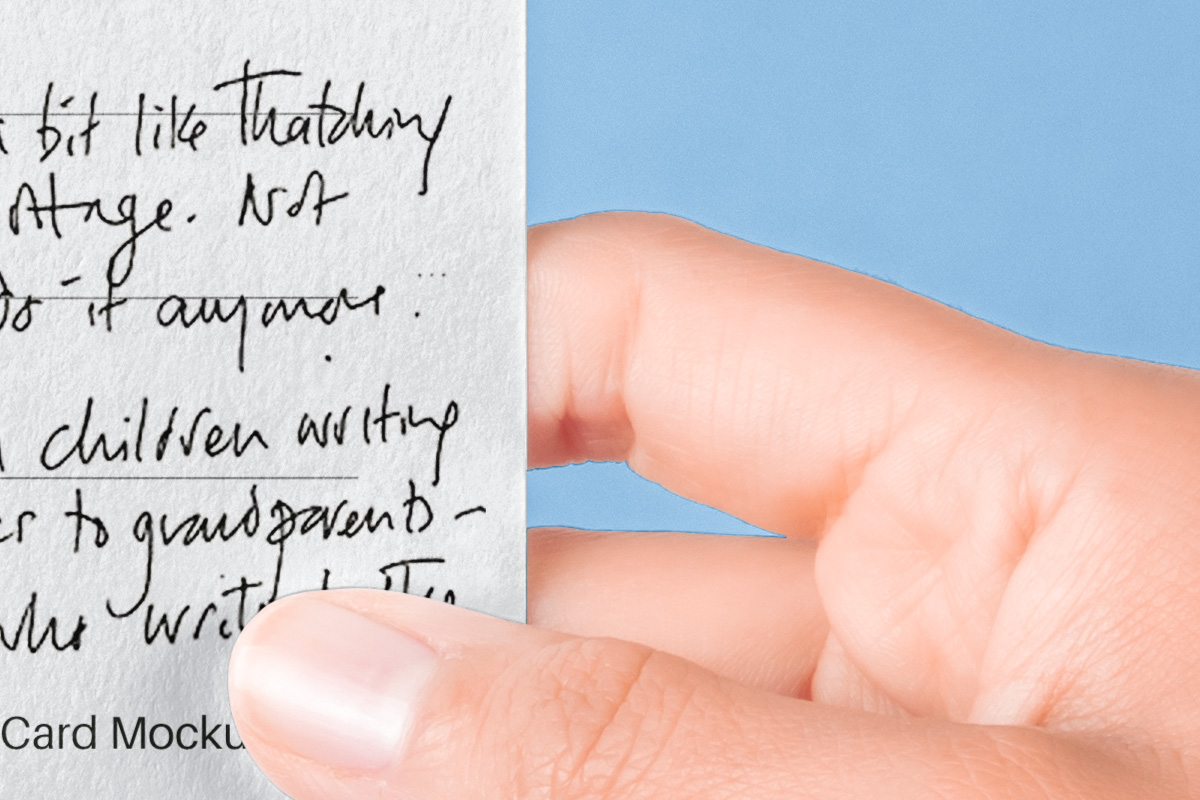 bit like Thatching
Not
it anymore.
children writing
to grandparents -
who
Card Mocku